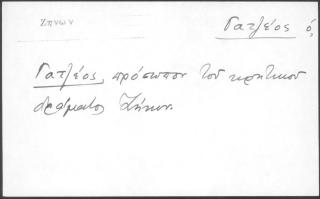 Ζήνων
Γατζέος ὁ,
Γατζέος, πρόσωπον τοῦ κρητικοῦ
δράματος Ζήνων.